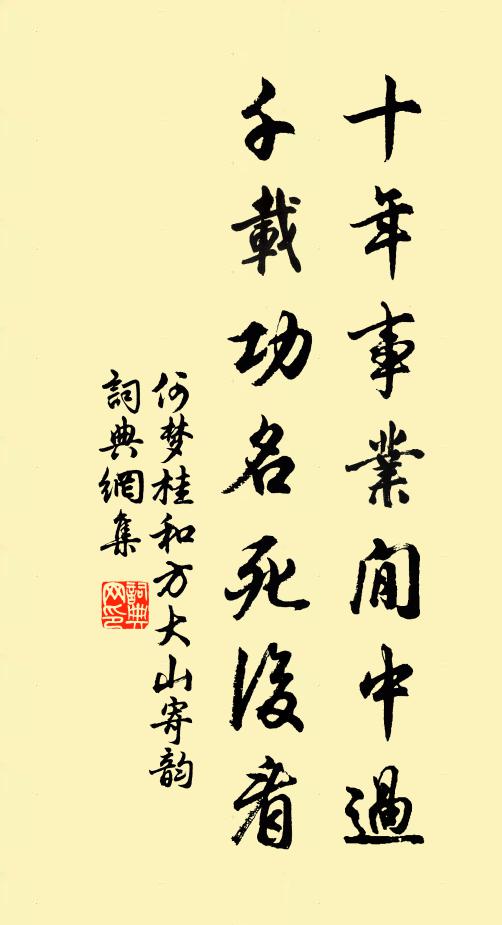 十年事業閒中過
千載功名死後看
何梦桂和方大山寄韵
詞典網集
詞典網印